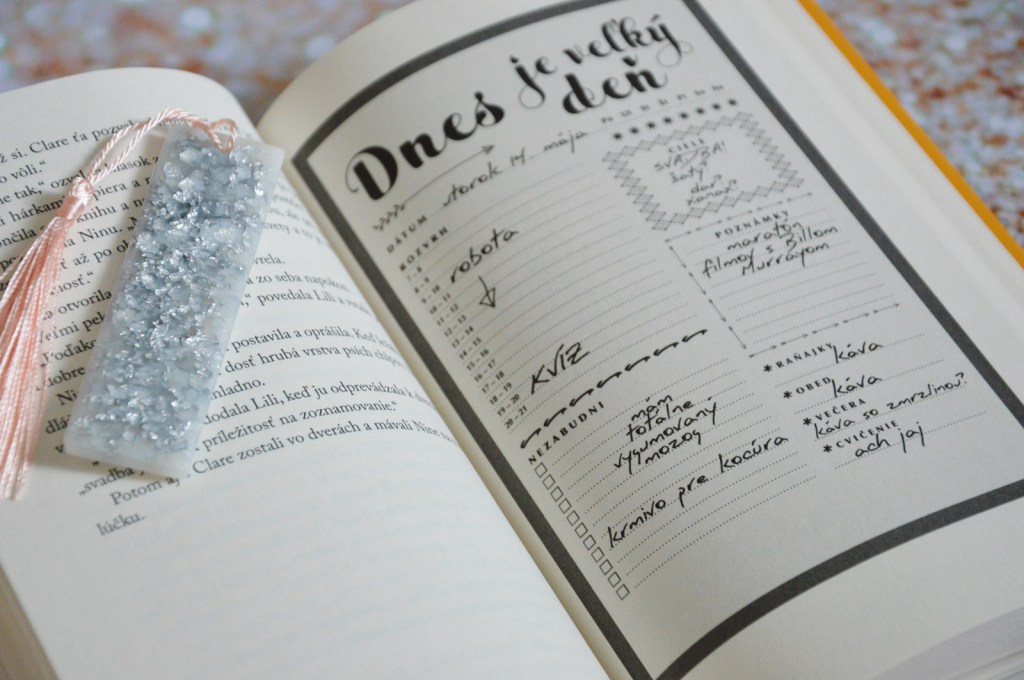 si. Clare ťa
vôli.“
ne tak,“
hárkami
knihu a
Ninu.
až po
otvorila
zo seba
povedala Lili a
postavila a oprášila. Keď
dosť hrubá vrstva psích
ladno.
dodala Lili, keď ju odprevádzala k
príležitosť na zoznamovanie.“
Clare zostali vo dverách a mávali Nine
„svadba
Potom
lúčku.
Dnes je veľký
deň
DÁTUM utorok 14. mája
ROZVRH
7 – 8
8 – 9
9 – 10 robota
10 – 11
11 – 12
12 – 13
13 – 14
14 – 15
15 – 16
16 – 17
17 – 18
18 – 19
19 – 20 KVÍZ
20 – 21
NEZABUDNI
mám
totálne
vygumovaný
mozog
krmivo pre kocúra
CIELE
SVADBA!
šaty
dar?
POZNÁMKY
maratón
filmov s Billom
Murrayom
*RAŇAJKY káva
*OBED káva
*VEČERA
káva so zmrzlinou?
*CVIČENIE
ach jaj